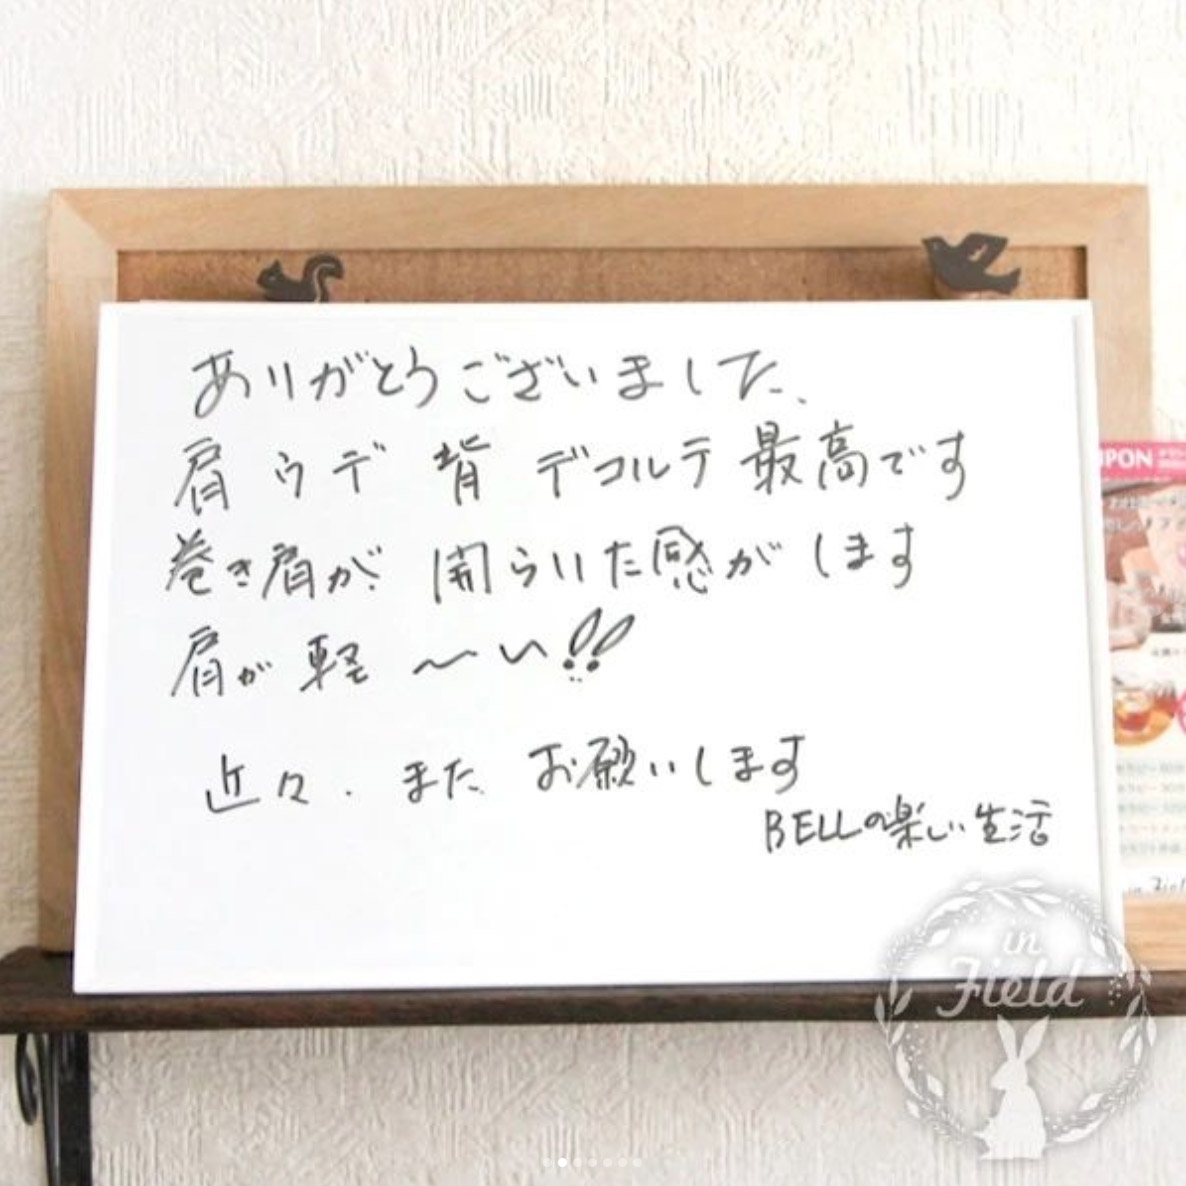 ありがとうございました、
肩 ウデ 背 デコルテ 最高です
巻き肩が 開らいた感がします
肩が 軽〜い!!
近々、また、お願いします
BELLの楽しい生活
in
Field